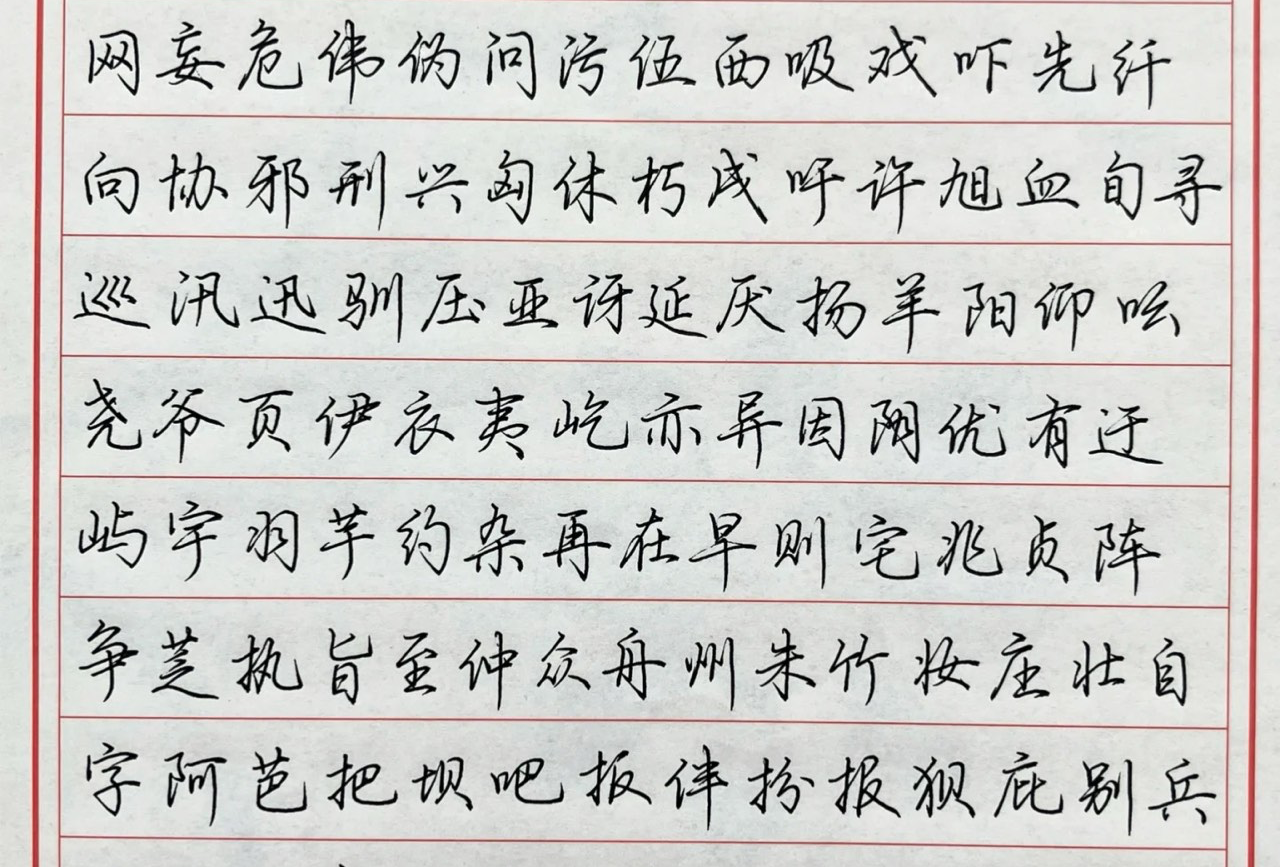 网妄危伟伪问污伍西吸戏吓先纤
向协邪刑兴匈休朽戌吁许旭血旬寻
巡汛迅驯压亚讶延厌扬羊阳仰吆
尧爷页伊衣夷屹亦异因阴优有迂
屿宇羽芋约杂再在早则宅兆贞阵
争芝执旨至仲众舟州朱竹妆庄壮自
字阿芭把坝吧扳伴扮报狈庇别兵